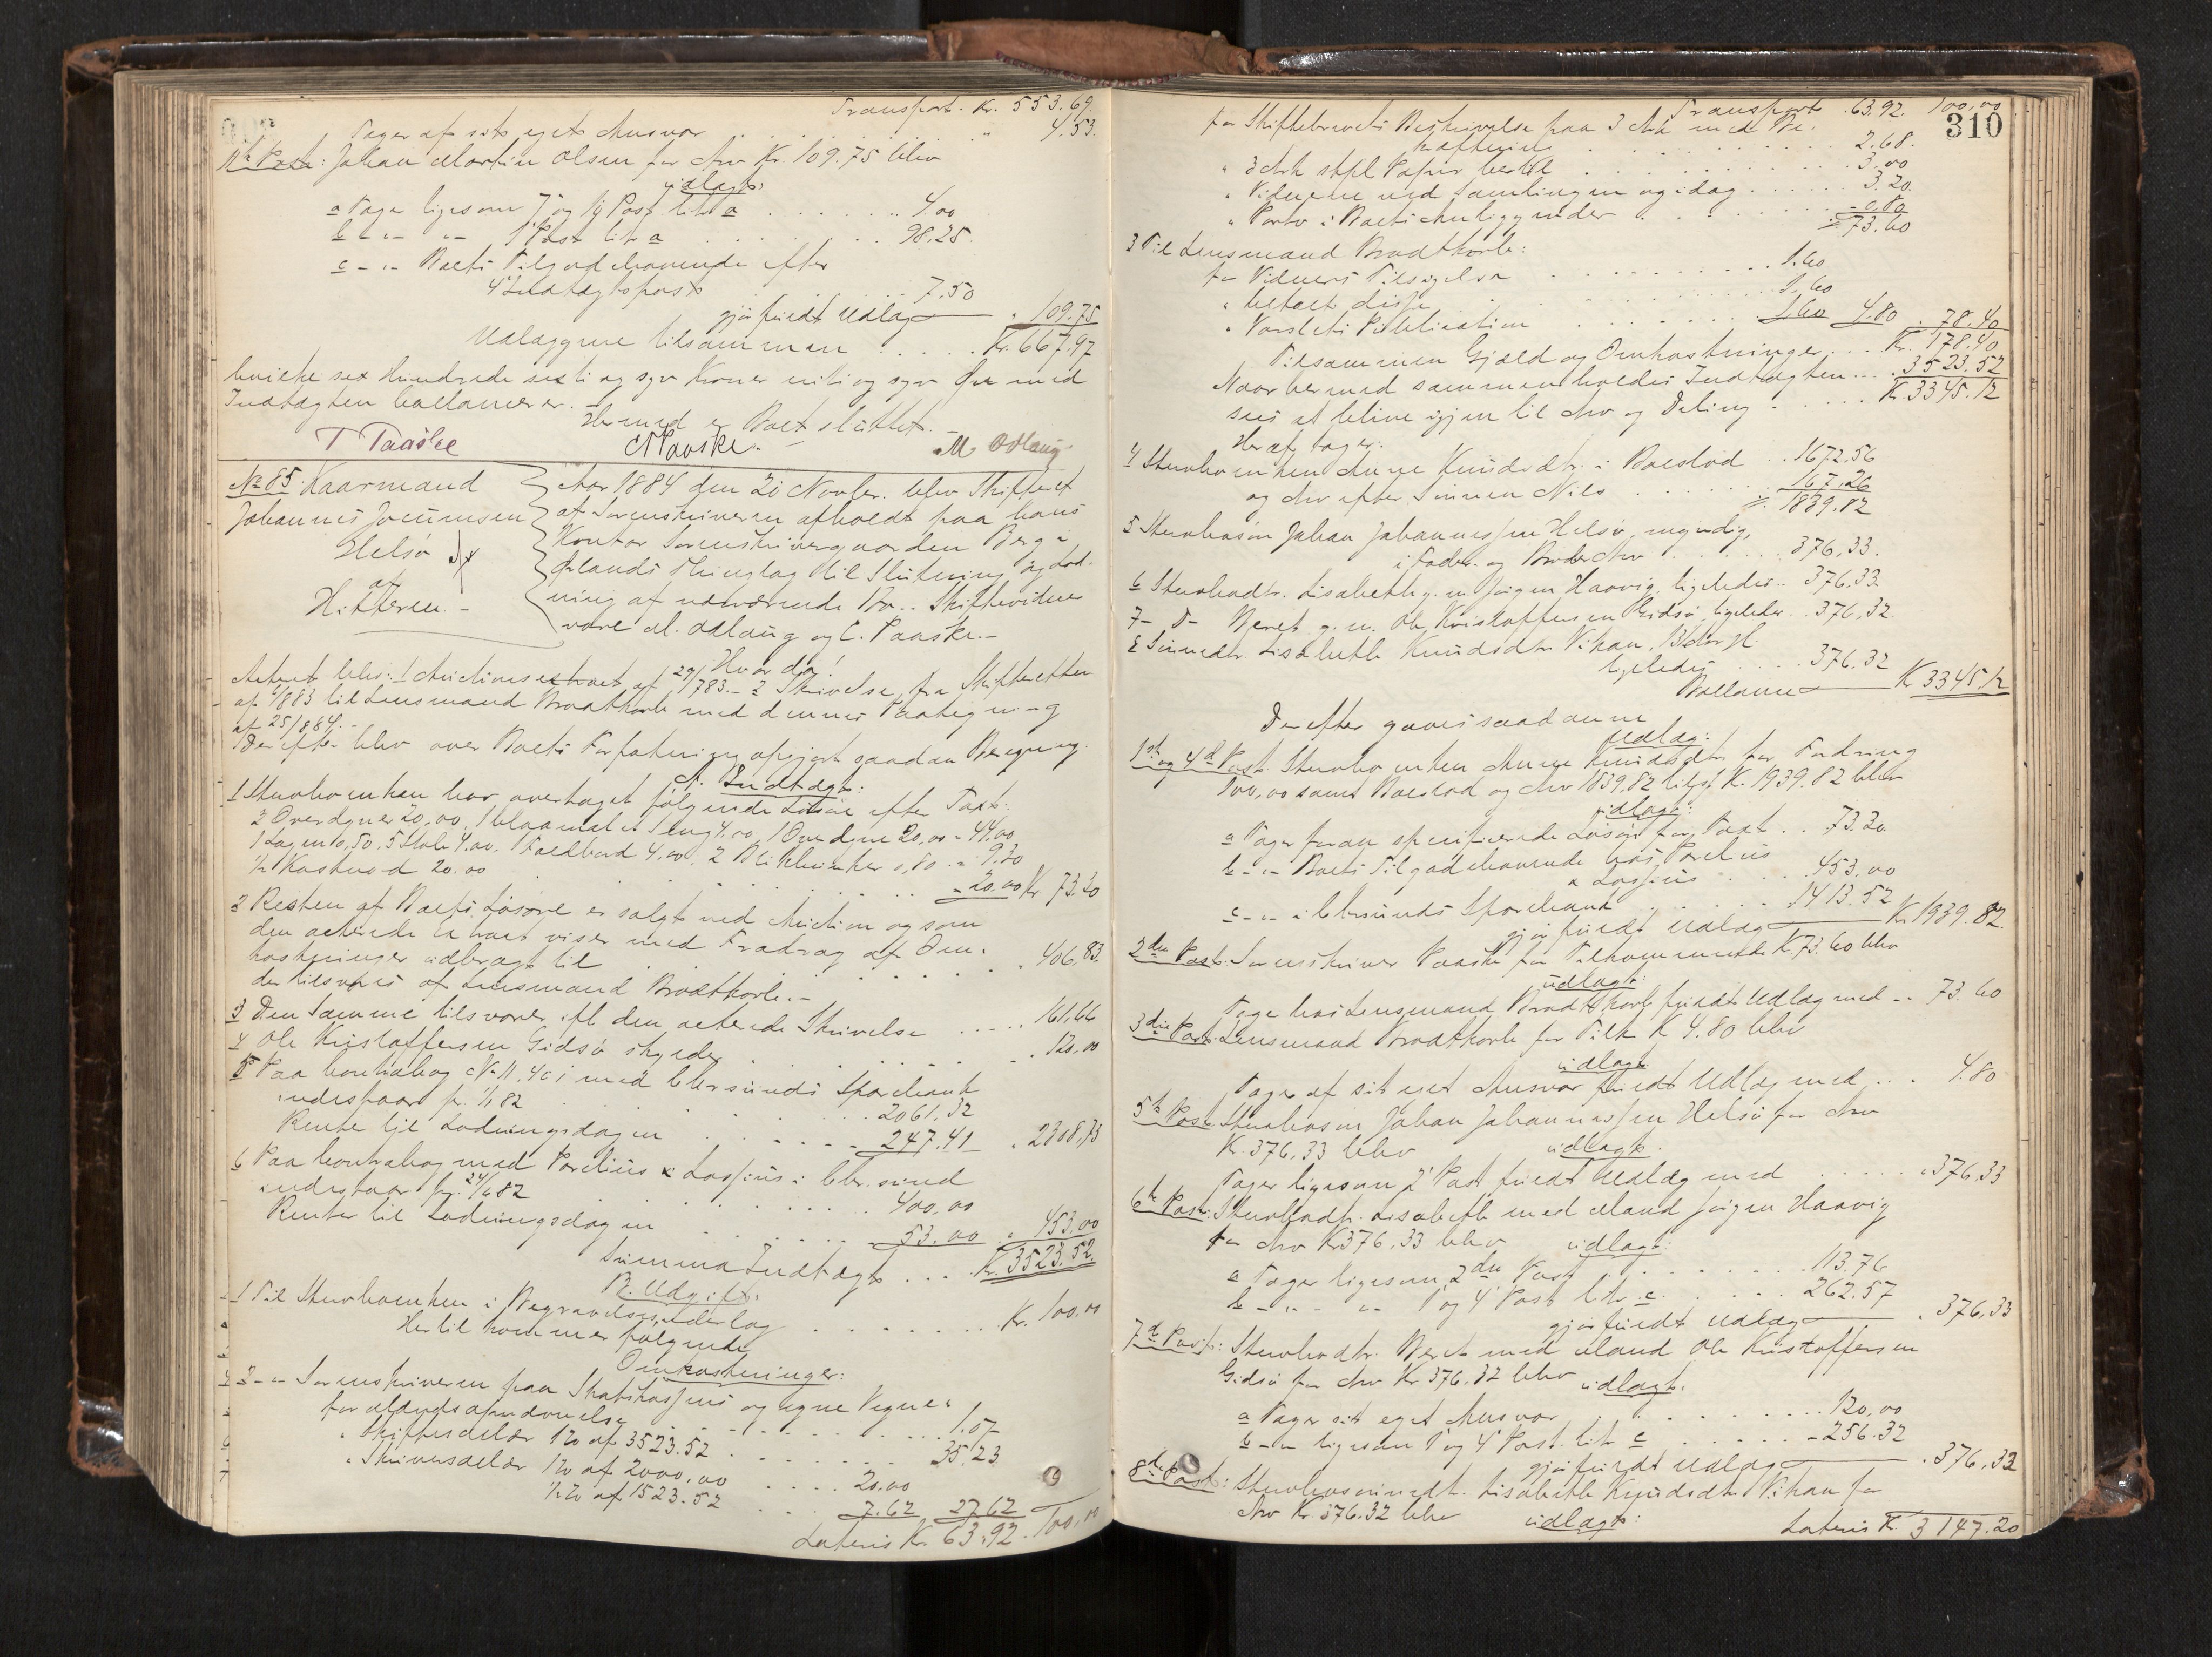 Transport. Kr. 553.69.
Tager af sit eget Ansvar . . . " 4.53.
Post: Johan Martin Olsen for Arv Kr. 109.75 blev
udlagt:
a Tager ligesom 7 og 19 Post litr a . . . 4.00
b - " - " - 1 Post litr a . . . 98.25.
c - " - Boets Tilgodehavende efter
4 Indtægtspost . . . 7.50
gjør fuldt Udlæg " 109.75
Udlæggene tilsammen . . . Kr. 667.97
hvilke sex Hundrede sexti og syv Kroner nitti og syv Øre med
Indtægten ballancerer. -
Hermed er Boet sluttet. -
T Paaske C Paaske. M Odlaug
No 85. Kaarmand
Johannes Jocumsen
Helsø
af
Hitteren -
Aar 1884 den 20 Novbr. blev Skifteret
af Sorenskriveren afholdt paa hans
Kontor Sorenskrivergaarden Berg i
Ørlands Thinglag til Slutning og Lod-
ning af nærværende Bo.- Skiftevidner
vare M. Odlaug og C. Paaske.-
Hvorda!
Acteret blev: 1 Auctionsextract af 29/783.- 2 Skrivelse fra Skifteretten
af /883 til Lensmand Brodtkorb med dennes Paategning
af 25/884.-
Derefter blev over Boets Forfatning opgjort saadan Beregning.
A. Indtægt:
1 Stervboenken har overtaget følgende Løsøre efter Taxt:
2 Overdyner 20,00, 1 blaamalet Seng 4.00, 1 Overdyne 20,00 = 44,00
1 Lagen 0,50, 5 Stole 4.00, 1 Foldbord 4,00, 2 Blikbøtter 0,80 = 9.30
1/2 Kastnod 20.00 . . . - 20.00 Kr. 73.30
2 Resten af Boets Løsøre er solgt ved Auction og som
den acterede Extract viser med Fradrag af Om-
kostninger udbragt til . . . " 406.83.
der tilsvares af Lensmand Brodtkorb.-
3 Den Samme tilsvarer ifl den acterede Skrivelse . . . 161,66
4 Ole Kristoffersen Gidsø skylder . . . " 120,00
5 Paa Contrabog No 11,401 med Chr.sunds Sparebank
indestaar pr. 1/1 82 . . . 2061.32
Rente til Lodningsdagen . . . 247.41 " 2308,73
6 Paa Contrabog med Parelius & Lossius i Chr.sund
indestaar pr. 24/6 82 . . . 400,00
Renter til Lodningsdagen . . . 53.00 " 453.00
Summa Indtægt . . . Kr. 3523.52.
B. Udgift.
1 Til Stervboenken i Begravelsesvederlag . . . Kr. 100.00
Hertil kommer følgende
Omkostninger:
2 - " - Sorenskriveren paa Statskassens og egne Vegne:
for Dødsanmeldelse . . . 1.07
" Skiftesdeler 1% af 3523.52 . . . 35.23
" Skriversdeler 1% af 2000.00 . . . 20.00
1/2% af 1523.52 . . . 7.62 27.62
Lateris Kr. 63.92. 100,00
310
Transport 63.92. 100,00
for Skiftebrevets Beskrivelse paa 3 Ark med Be-
kræftelse . . . 2.68.
" 3 Ark stpl Papir hertil . . . 3.00
" Vidnerne ved Samlingen og idag . . . 3.20.
" Porto i Boets Anliggender . . . - 0.50
= 73.60
3 Til Lensmand Brodtkorb:
for Vidners Tilsigelse . . . 1.60
" betalt disse . . . 1.60
" Varslets Publication . . . 1.60 4.80 " 78.40
Tilsammen Gjæld og Omkostninger . . . Kr. 178.40
Naar hermed sammenholdes Indtægten . . . 3523.52
sees at blive igjen til Arv og Deling . . . Kr. 3345.12
Heraf tager:
4 Stervboenken Anne Knudsdtr. i Boeslod . . 1672.56
og Arv efter Sønnen Nils . . . 167.26
= 1839.82
5 Stervbosøn Johan Johannessen Helsø, myndig,
i Fader- og BroderArv . . . 376,33.
6 Stervbodtr. Lisabeth g. m. Jørgen Haavig, ligeledes . . 376,33.
7 - D - Beret g. m. Ole Kristoffersen Gidsø, ligeledes . . 376,32
8 Sønnedtr. Lisabeth Knudsdtr. Vikan, 13 Aar gl.
ligeledes . . . 376.32
Ballance Kr 3345.12
Derefter gaves saadanne
Udlæg:
1ste og 4de Post. Stervboenken Anne Knudsdtr. for Fordring
100,00 samt Boeslod og Arv 1839,82 tilsst. K. 1939.82 blev
udlagt:
a Tager foran specificerede Løsøre for Taxt . . 73.30
b - " - Boets Tilgodehavende hos Parelius
& Lossius . . . 453.00
c - " - i Chr.sunds Sparebank . . . 1413.52
gjør fuldt Udlæg K. 1939.82.
2den Post: Sorenskriver Paaske for Tilkommende K. 73.60 blev
udlagt:
Tager hos Lensmand Brodtkorb fuldt Udlæg med . . 73.60
3die Post. Lensmand Brodtkorb for Tilk. K 4.80 blev
udlagt
Tager af sit eget Ansvar fuldt Udlæg med . . . 4.80
5te Post Stervbosøn Johan Johannessen Helsø for Arv
K 376,33 blev udlagt.
Tager ligesom 2 Post fuldt Udlæg med . . . " 376,33
6te Post: Stervbodtr. Lisabeth med Mand Jørgen Haavig
for Arv Kr 376,33 blev udlagt:
a Tager ligesom 2den Post . . . 113.76
b - " - " - 1 og 4 Post litr. c . . . 262.57
gjør fuldt Udlæg " 376,33
7de Post: Stervbodtr. Beret med Mand Ole Kristoffersen
Gidsø for Arv Kr. 376.32 blev udlagt.
a Tager sit eget Ansvar . . . 120,00
b - " - ligesom 1 og 4 Post. litr. c . . . - 256.32
gjør fuldt Udlæg " 376,32
8de Post: Stervbosønnedtr. Lisabeth Knudsdtr. Vikan for
Arv Kr. 376.32 blev udlagt:
Lateris Kr. 3147.20